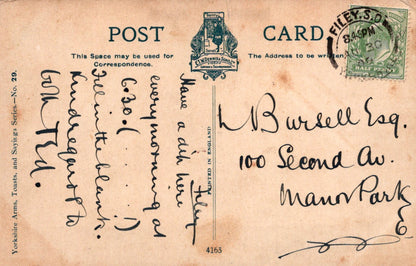 POST CARD
This Space may be used for
Correspondence.
The Address to be written
FILEY.S.O
8 45 PM
Yorkshire Arms, Toasts, and Sayings Series—No. 29.
Filey
Have a dip here
every morning at
6.30. ( . . . . . !)
Fill in the blank.
Kind regards to
PRINTED IN ENGLAND
4163
L Bursell Esq.
100 Second Av.
Manor Park